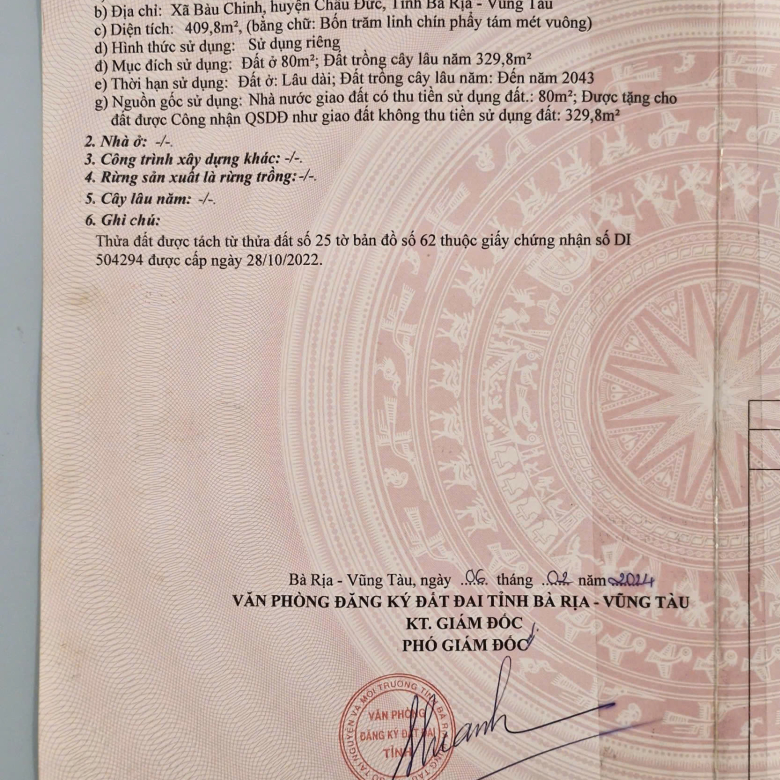 b) Địa chỉ: Xã Bàu Chinh, huyện Châu Đức, Tỉnh Bà Rịa - Vũng Tàu
c) Diện tích: 409,8m², (bằng chữ: Bốn trăm linh chín phẩy tám mét vuông)
d) Hình thức sử dụng: Sử dụng riêng
đ) Mục đích sử dụng: Đất ở 80m²; Đất trồng cây lâu năm 329,8m²
e) Thời hạn sử dụng: Đất ở: Lâu dài; Đất trồng cây lâu năm: Đến năm 2043
g) Nguồn gốc sử dụng: Nhà nước giao đất có thu tiền sử dụng đất.: 80m²; Được tặng cho
đất được Công nhận QSDĐ như giao đất không thu tiền sử dụng đất: 329,8m²
2. Nhà ở: -/-.
3. Công trình xây dựng khác: -/-.
4. Rừng sản xuất là rừng trồng: -/-.
5. Cây lâu năm: -/-.
6. Ghi chú:
Thửa đất được tách từ thửa đất số 25 tờ bản đồ số 62 thuộc giấy chứng nhận số DI
504294 được cấp ngày 28/10/2022.
Bà Rịa - Vũng Tàu, ngày 06 tháng 02 năm 2024
VĂN PHÒNG ĐĂNG KÝ ĐẤT ĐAI TỈNH BÀ RỊA - VŨNG TÀU
KT. GIÁM ĐỐC
PHÓ GIÁM ĐỐC
TÀI NGUYÊN VÀ MÔI TRƯỜNG TỈNH BÀ RỊA
VĂN PHÒNG
ĐĂNG KÝ ĐẤT ĐAI
TỈNH